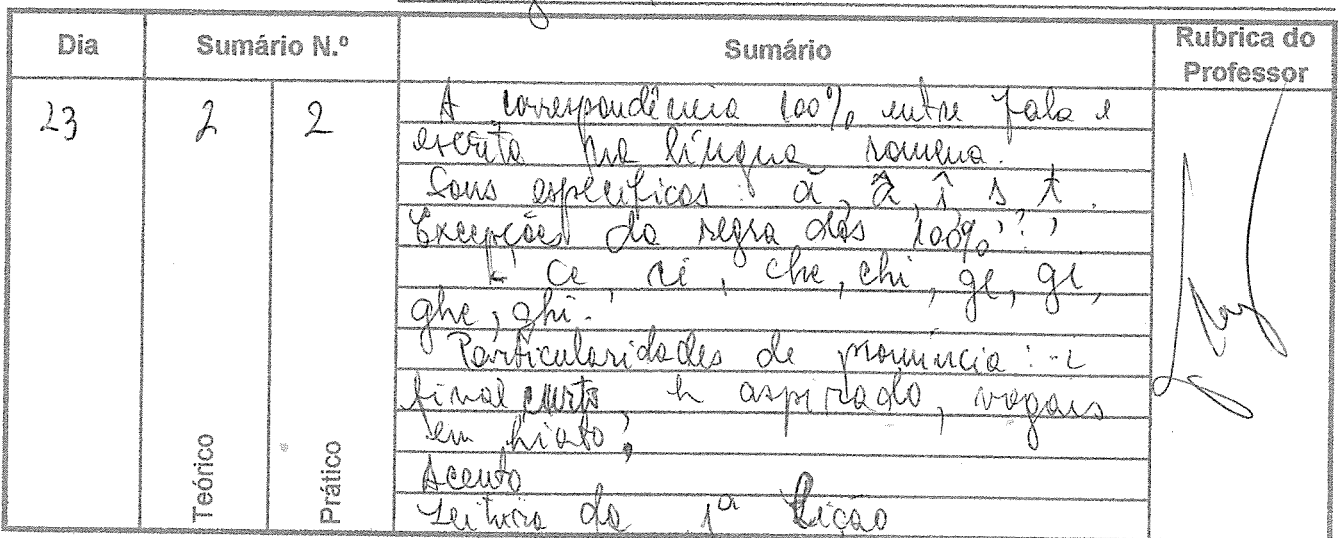 Dia Sumário N.º Sumário Rubrica do Professor
23 2 2
A correspondência 100% entre fala e
escrita na língua romena.
Sons específicos: ă, â, î, ș, ț.
Excepções da regra dos 100%:
ce, ci, che, chi, ge, gi,
ghe, ghi.
Particularidades de pronúncia: -i
final curto, h aspirado, vogais
em hiato;
Acento
Leitura da 1ª lição
Teórico Prático